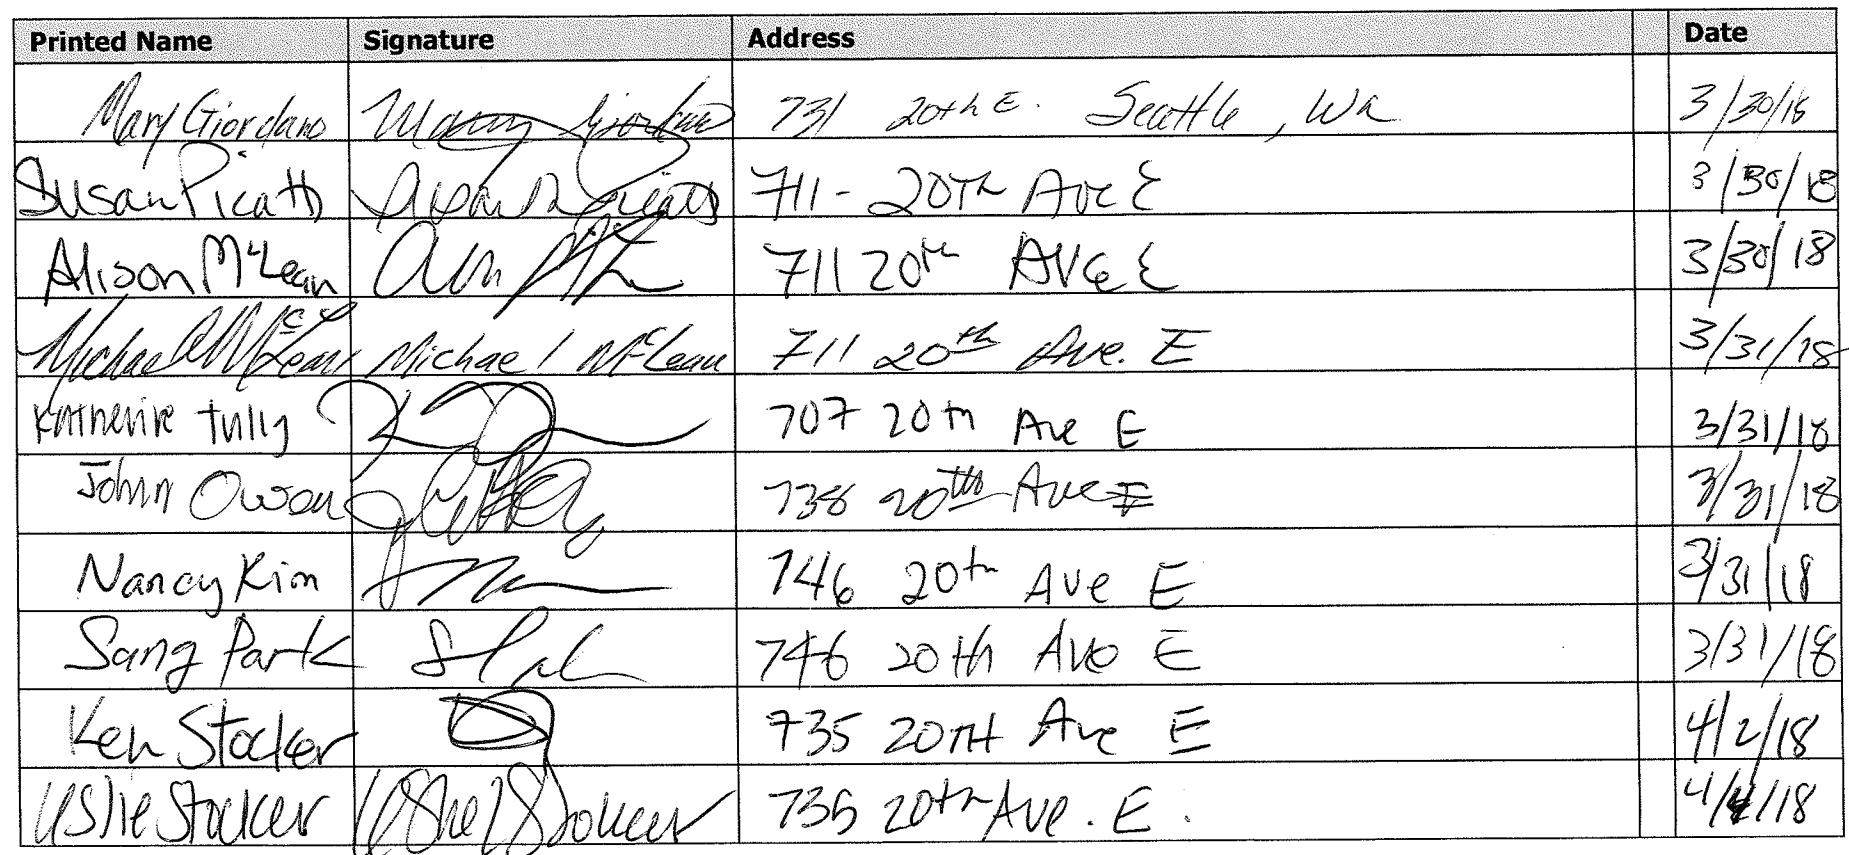 Printed Name Signature Address Date
Mary Giordano Mary Giordano 731 20th E. Seattle, Wa 3/30/18
Susan Picatti Susan Picatti 711- 20TH Ave E 3/30/18
Alison McLean 711 20th AVe E 3/30/18
Michael McLean Michael McLean 711 20th Ave. E 3/31/18
Katherine Tully 707 20th Ave E 3/31/18
John Owen 738 20th Ave E 3/31/18
Nancy Kim 746 20th Ave E 3/31/18
Sang Park 746 20th Ave E 3/31/18
Ken Stocker 735 20TH Ave E 4/2/18
Leslie Stocker Leslie Stocker 735 20th Ave. E. 4/ /18